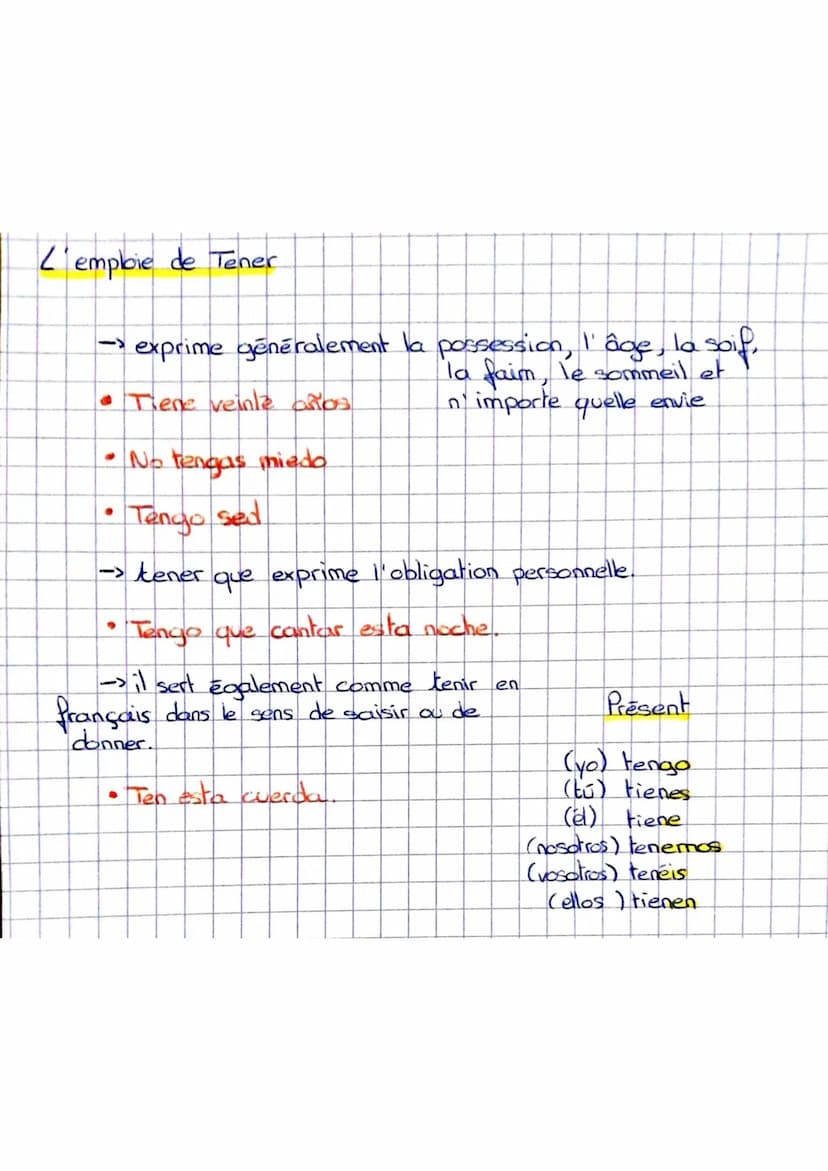 L'emploie de Tener
→ exprime généralement la possession, l'âge, la soif,
la faim, le sommeil et
n'importe quelle envie
• Tiene veinte años
• No tengas miedo
• Tengo sed
→ tener que exprime l'obligation personnelle.
• Tengo que cantar esta noche.
→ il sert également comme tenir en
français dans le sens de saisir ou de
donner.
• Ten esta cuerda.
Présent
(yo) tengo
(tú) tienes
(él) tiene
(nosotros) tenemos
(vosotros) tenéis
(ellos) tienen